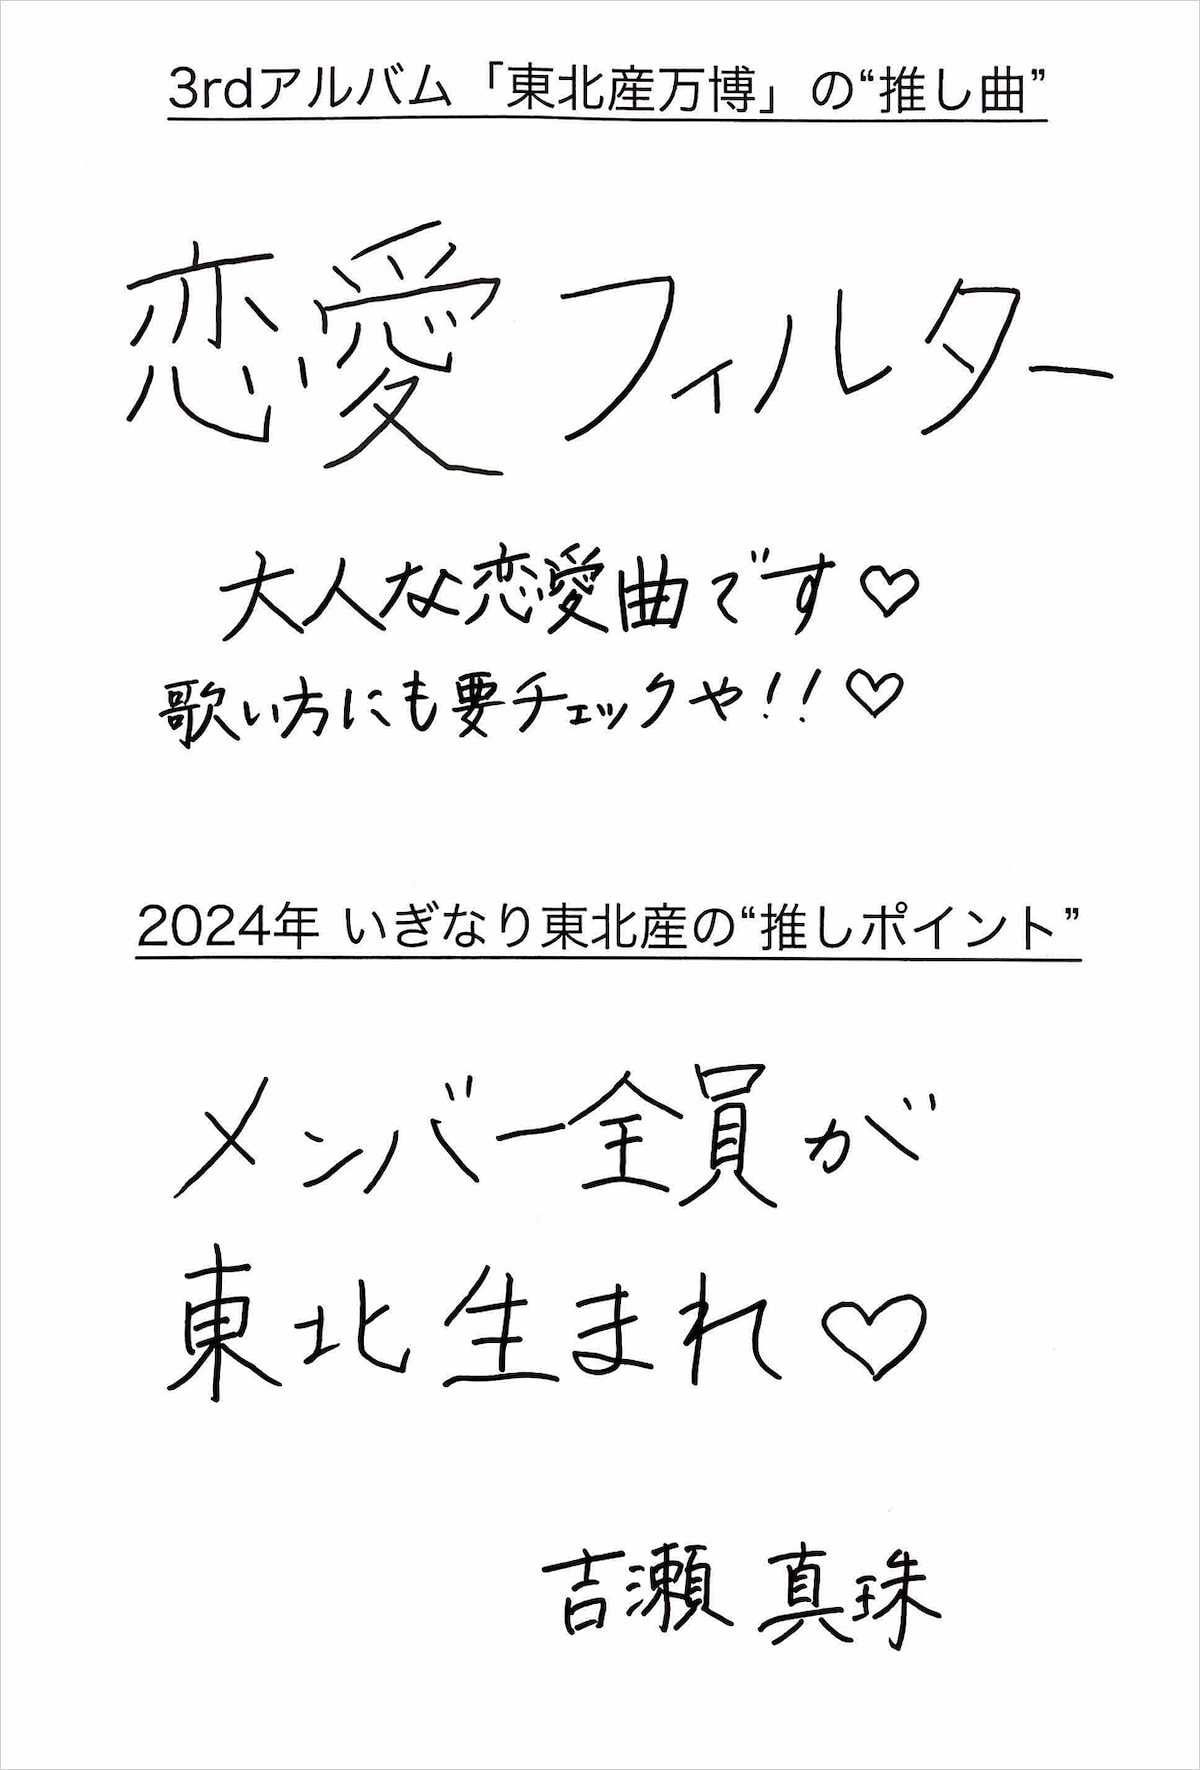 3rdアルバム「東北産万博」の“推し曲”
恋愛フィルター
大人な恋愛曲です♡
歌い方にも要チェックや!!♡
2024年 いぎなり東北産の“推しポイント”
メンバー全員が
東北生まれ♡
吉瀬 真珠